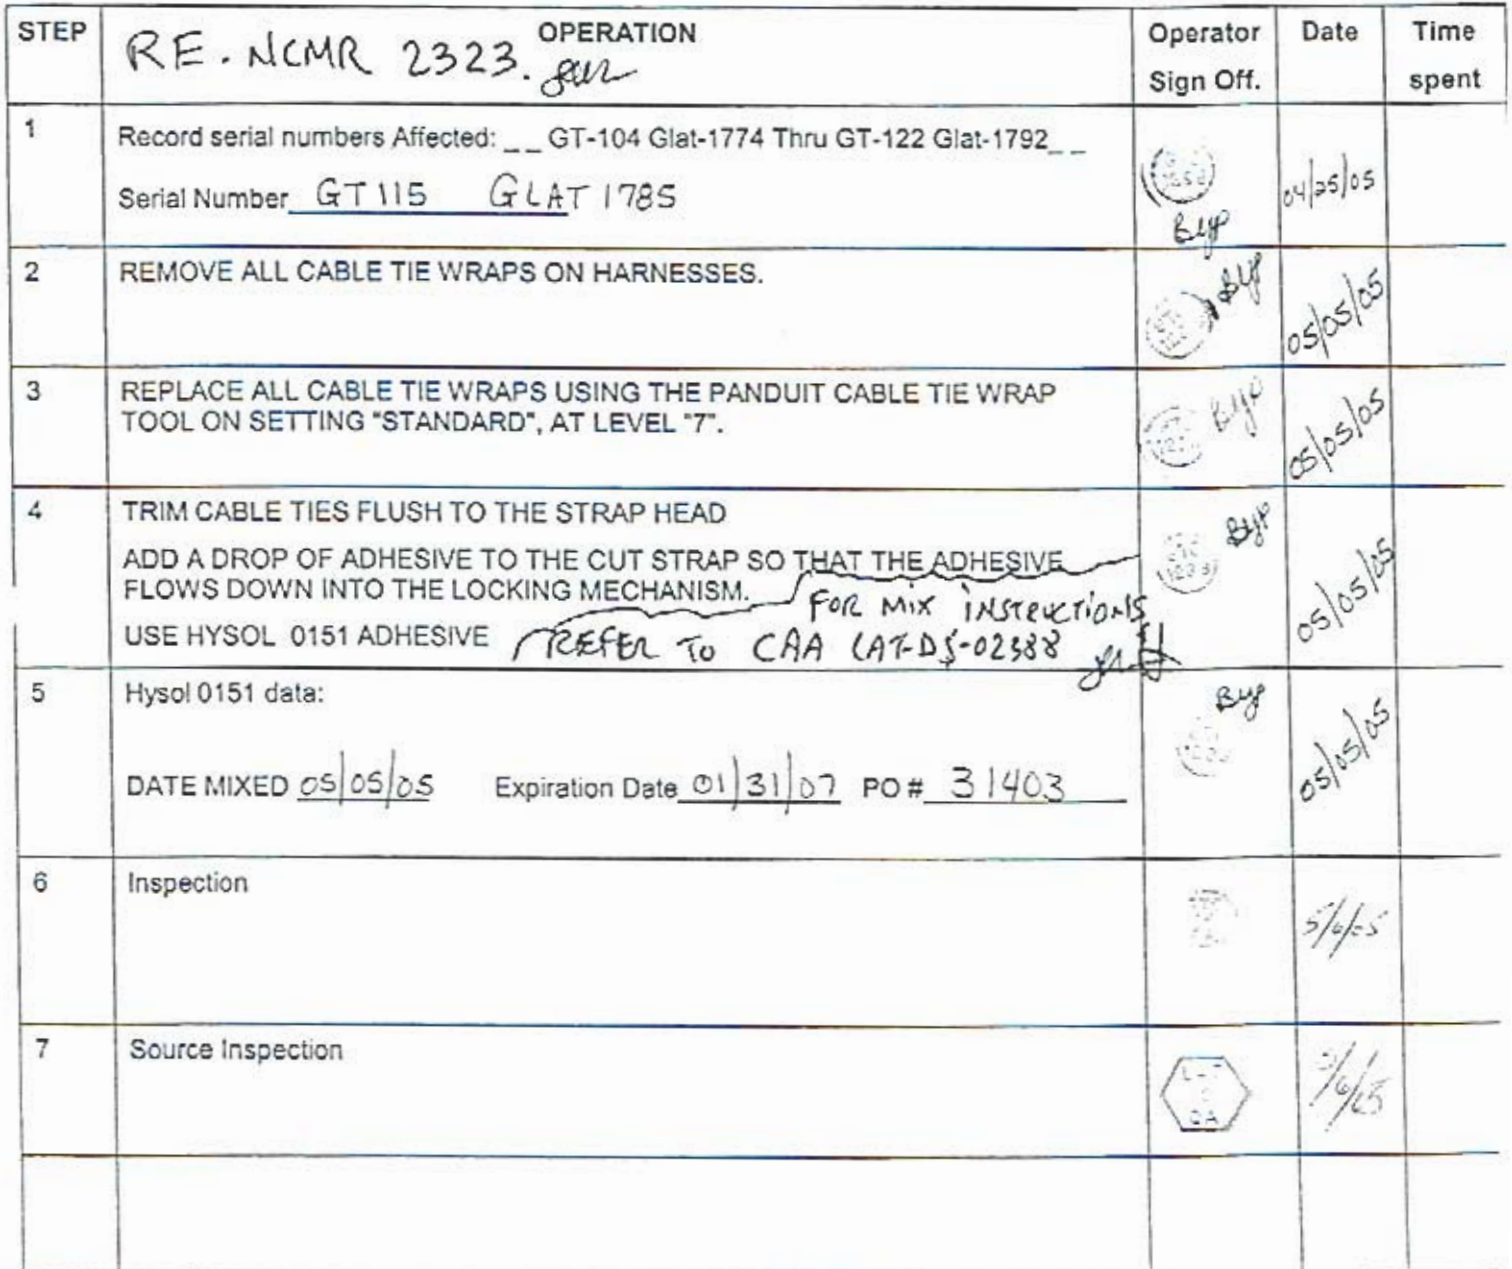 STEP OPERATION Operator Sign Off. Date Time spent
RE. NCMR 2323.
1 Record serial numbers Affected: _ _ GT-104 Glat-1774 Thru GT-122 Glat-1792_ _
Serial Number GT 115 GLAT 1785 04/25/05
2 REMOVE ALL CABLE TIE WRAPS ON HARNESSES. 05/05/05
3 REPLACE ALL CABLE TIE WRAPS USING THE PANDUIT CABLE TIE WRAP
TOOL ON SETTING "STANDARD", AT LEVEL "7". 05/05/05
4 TRIM CABLE TIES FLUSH TO THE STRAP HEAD
ADD A DROP OF ADHESIVE TO THE CUT STRAP SO THAT THE ADHESIVE
FLOWS DOWN INTO THE LOCKING MECHANISM. FOR MIX INSTRUCTIONS
USE HYSOL 0151 ADHESIVE REFER TO CAA LAT-DS-02388 05/05/05
5 Hysol 0151 data:
DATE MIXED 05/05/05 Expiration Date 01/31/07 PO # 31403 05/05/05
6 Inspection 5/6/05
7 Source Inspection
QA